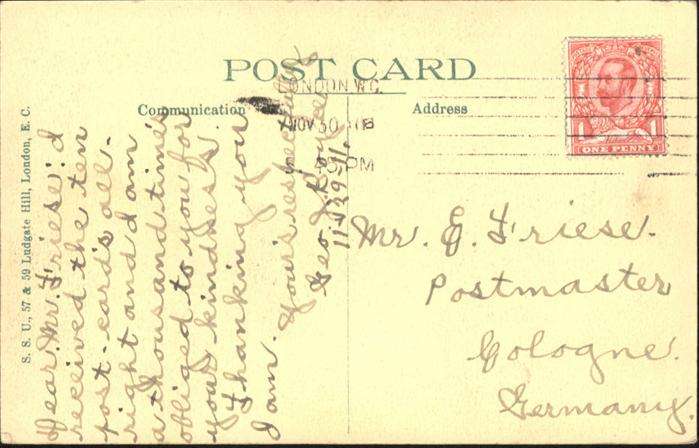 POST CARD
Communication
Address
S. S. U., 57 & 59 Ludgate Hill, London, E. C.
LONDON W.C.
NOV 30
PM
ONE PENNY
1 1
Dear Mr. Friese: I
received the ten
post-cards all-
right and I am
a thousand times
obliged to you for
your kindness.
Thanking you
I am. Your's respectfully
Geo.
11-29-11.
Mr. E. Friese.
Postmaster
Cologne.
Germany.